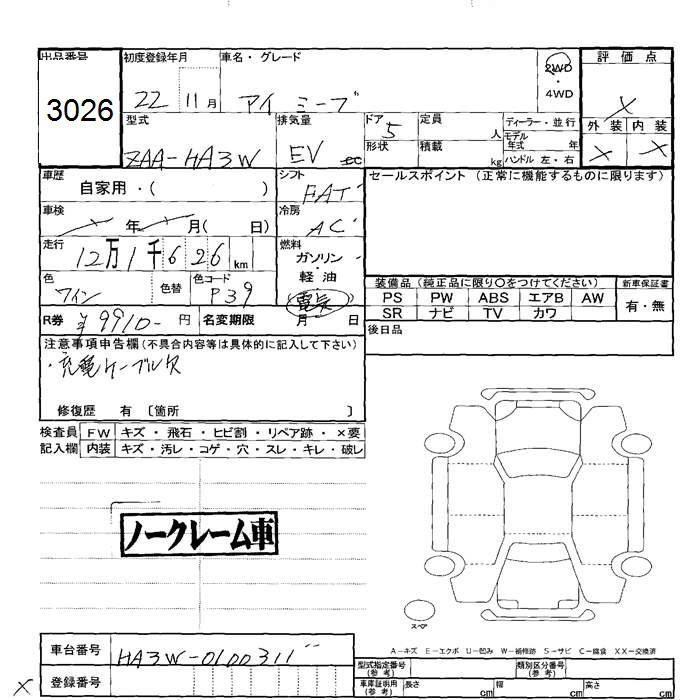 出品番号 初度登録年月 車名・グレード 2WD 評価点
3026 22 11月 アイ ミーブ ・ 4WD X
型式 排気量 ドア 5 定員 人 ディーラー・並行 外装 内装
ZAA-HA3W EV cc 形状 積載 kg モデル年式 年 X X
ハンドル 左・右
車歴 自家用・( ) シフト FAT セールスポイント (正常に機能するものに限ります)
車検 年 月( 日) 冷房 AC
走行 12万1千626km 燃料 ガソリン・軽油
電気
色 ワイン 色替 色コード P39 装備品(純正品に限り〇をつけてください) 新車保証書
PS PW ABS エアB AW 有・無
R券 ¥9910- 円 名変期限 月 日 SR ナビ TV カワ
注意事項申告欄(不具合内容等は具体的に記入して下さい) 後日品
・充電ケーブル欠
修復歴 有 〔箇所 〕
検査員 FW キズ・飛石・ヒビ割・リペア跡・×要
記入欄 内装 キズ・汚レ・コゲ・穴・スレ・キレ・破レ
ノークレーム車
スペア
A-キズ E-エクボ U-凹み W-補修跡 S-サビ C-腐食 XX-交換済
車台番号 HA3W-0100311 型式指定番号(参考) 類別区分番号(参考)
X 登録番号 車庫証明用(参考) 長さ cm 幅 cm 高さ cm